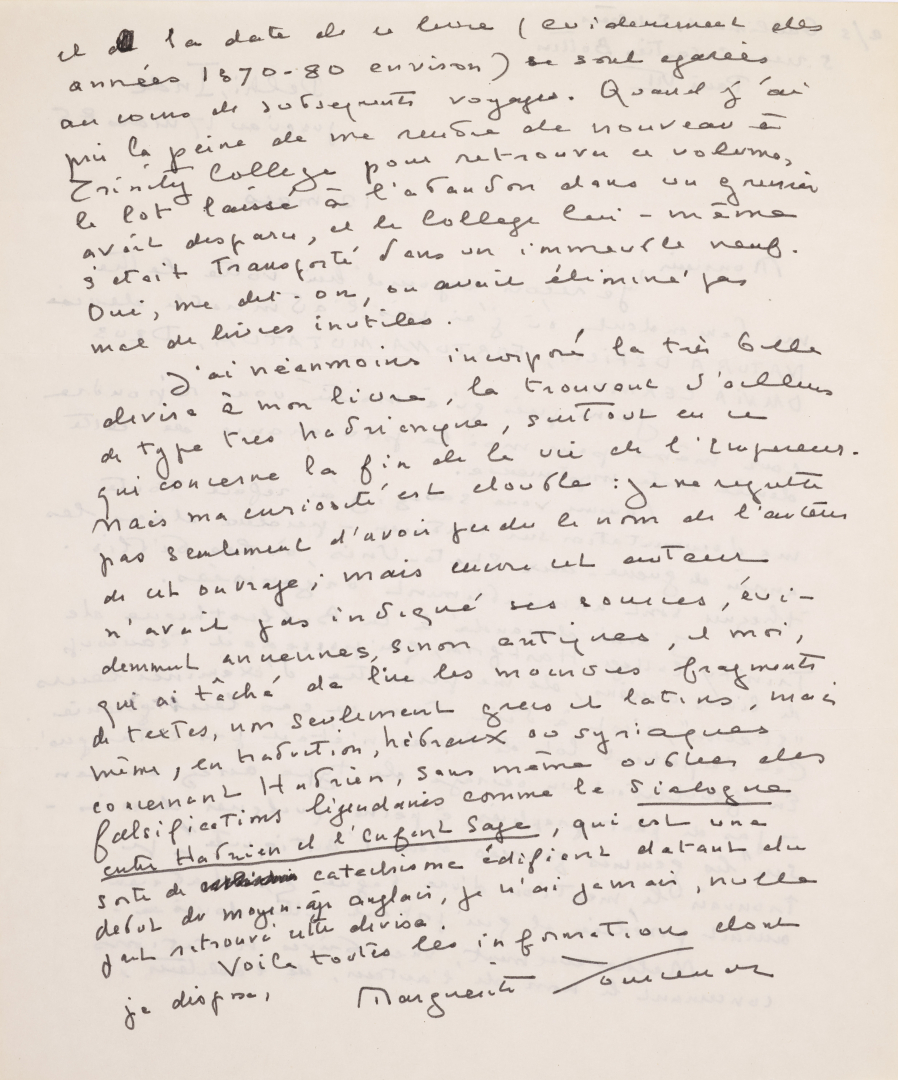 et la date de ce livre (évidemment des
années 1870-80 environ) se sont égarées
au cours de subséquents voyages. Quand j'ai
pris la peine de me rendre de nouveau à
Trinity College pour retrouver ce volume,
le lot laissé à l'abandon dans un grenier
avait disparu, et le College lui-même
s'était transporté dans un immeuble neuf.
Oui, me dit-on, on avait éliminé pas
mal de livres inutiles.
J'ai néanmoins incorporé la très belle
devise à mon livre, la trouvant d'ailleurs
de type très hadrienique, surtout en ce
qui concerne la fin de la vie de l'Empereur.
Mais ma curiosité est double : je ne regrette
pas seulement d'avoir perdu le nom de l'auteur
de cet ouvrage ; mais encore cet auteur
n'avait pas indiqué ses sources, évi-
demment anciennes, sinon antiques, et moi,
qui ai tâché de lire les moindres fragments
de textes, non seulement grecs et latins, mais
même, en traduction, hébreux ou syriaques
concernant Hadrien, sans même oublier des
falsifications légendaires comme le Dialogue
entre Hadrien et l'Enfant Sage, qui est une
sorte de catéchisme édifiant datant du
début du moyen-âge anglais, je n'ai jamais, nulle
part retrouvé cette devise.
Voilà toutes les informations dont
je dispose,
Marguerite Yourcenar